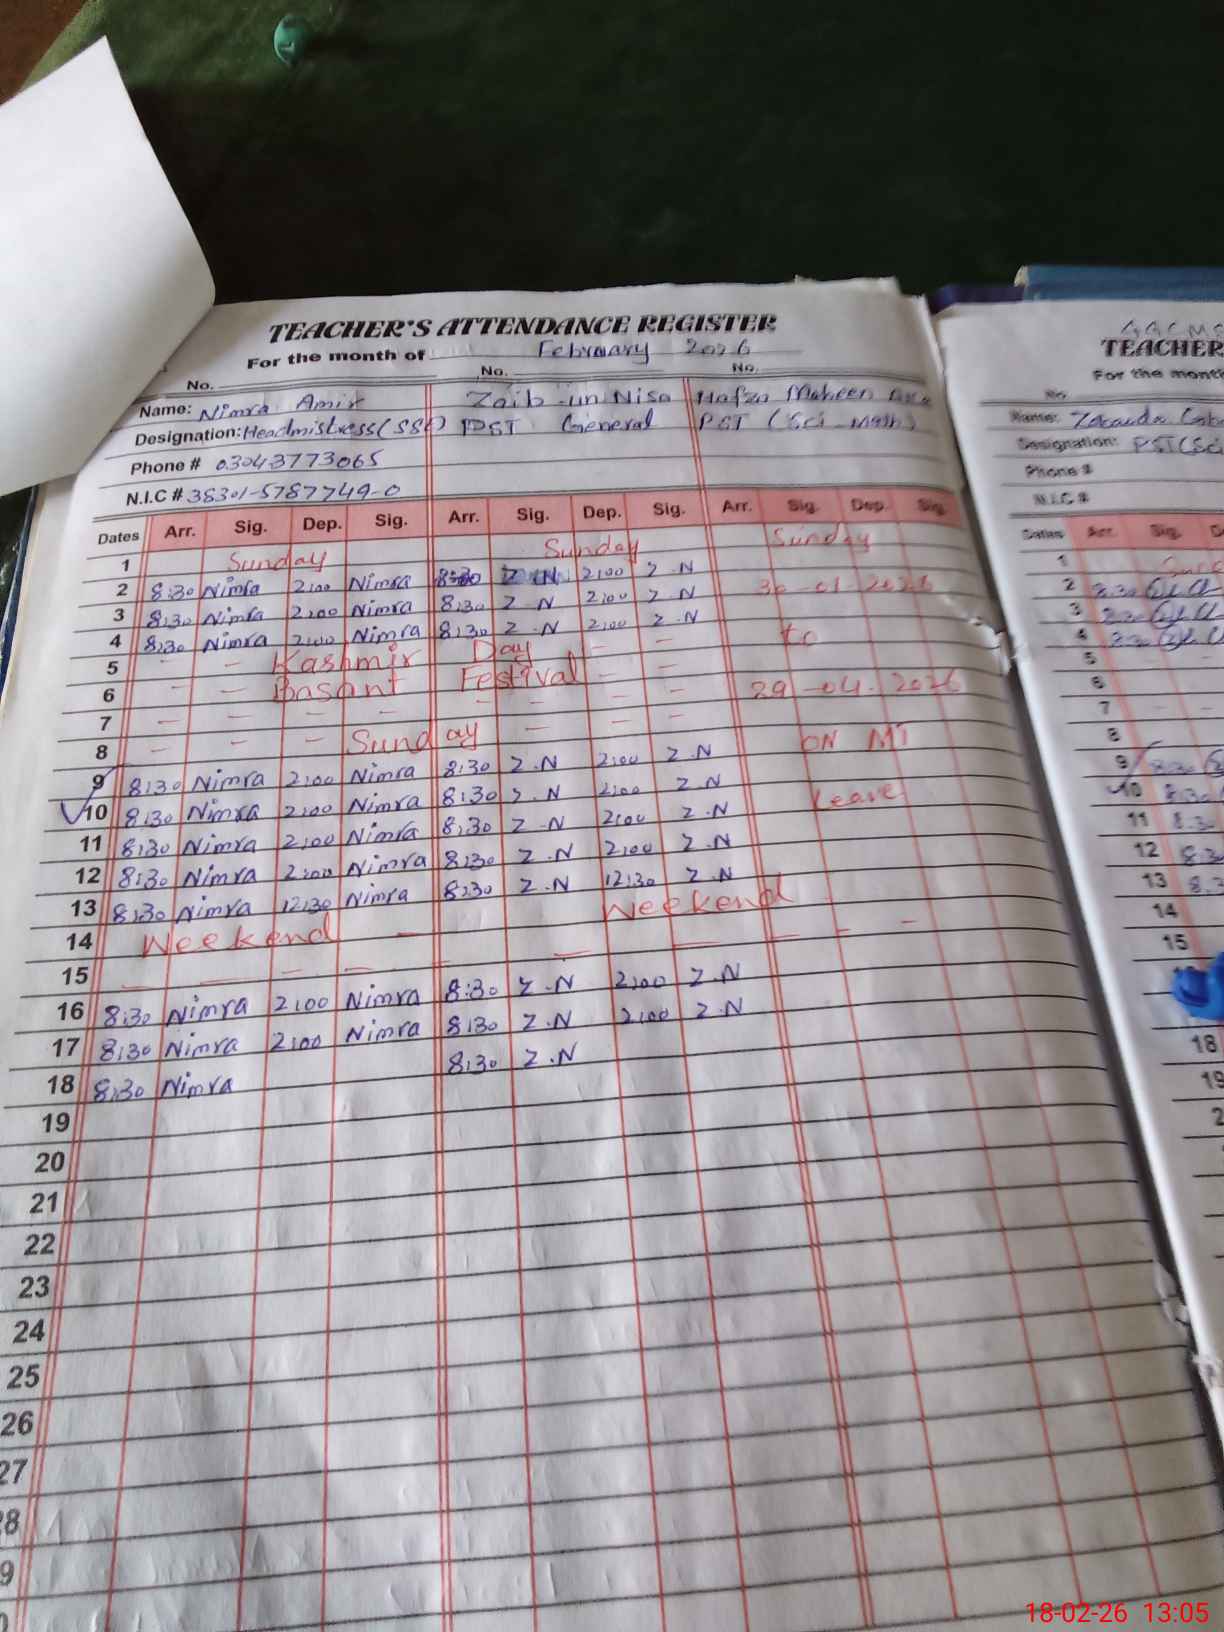 TEACHER'S ATTENDANCE REGISTER
For the month of February 2026
No. No. No.
Name: Nimra Amir Zaib-un-Nisa Hafza Maheen
Designation: Headmistress(SSE) PST General PST (Sci-Math)
Phone # 03043773065
N.I.C # 38301-5787749-0
Dates Arr. Sig. Dep. Sig. Arr. Sig. Dep. Sig. Arr. Sig. Dep. Sig.
1 Sunday Sunday Sunday
2 8:30 Nimra 2:00 Nimra 8:30 Z.N 2:00 Z.N 30-01-2026
3 8:30 Nimra 2:00 Nimra 8:30 Z.N 2:00 Z.N
4 8:30 Nimra 2:00 Nimra 8:30 Z.N 2:00 Z.N to
5 - - Kashmir Day - -
6 - - Basant Festival - - 29-04-2026
7 - - - - - - - -
8 - - - Sunday - - - ON MT
9 8:30 Nimra 2:00 Nimra 8:30 Z.N 2:00 Z.N
10 8:30 Nimra 2:00 Nimra 8:30 Z.N 2:00 Z.N Leave
11 8:30 Nimra 2:00 Nimra 8:30 Z.N 2:00 Z.N
12 8:30 Nimra 2:00 Nimra 8:30 Z.N 2:00 Z.N
13 8:30 Nimra 12:30 Nimra 8:30 Z.N 12:30 Z.N
14 Weekend - Weekend
15 - - - - - - - - - -
16 8:30 Nimra 2:00 Nimra 8:30 Z.N 2:00 Z.N
17 8:30 Nimra 2:00 Nimra 8:30 Z.N 2:00 Z.N
18 8:30 Nimra 8:30 Z.N
19
20
21
22
23
24
25
26
27
8
9
TEACHER
For the month
No
Name:
Designation: PST(Sci
Phone #
N.I.C #
Dates Arr. Sig.
1
2 8:30
3 8:30
4 8:30
5
6
7
8
9 8:30
10 8:30
11 8:30
12 8:30
13 8:3
14
15
18
19
2
18-02-26 13:05